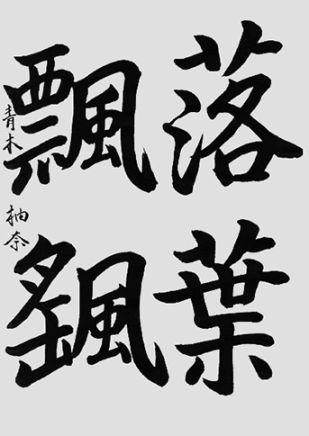 落葉
飄颻
青木柚奈